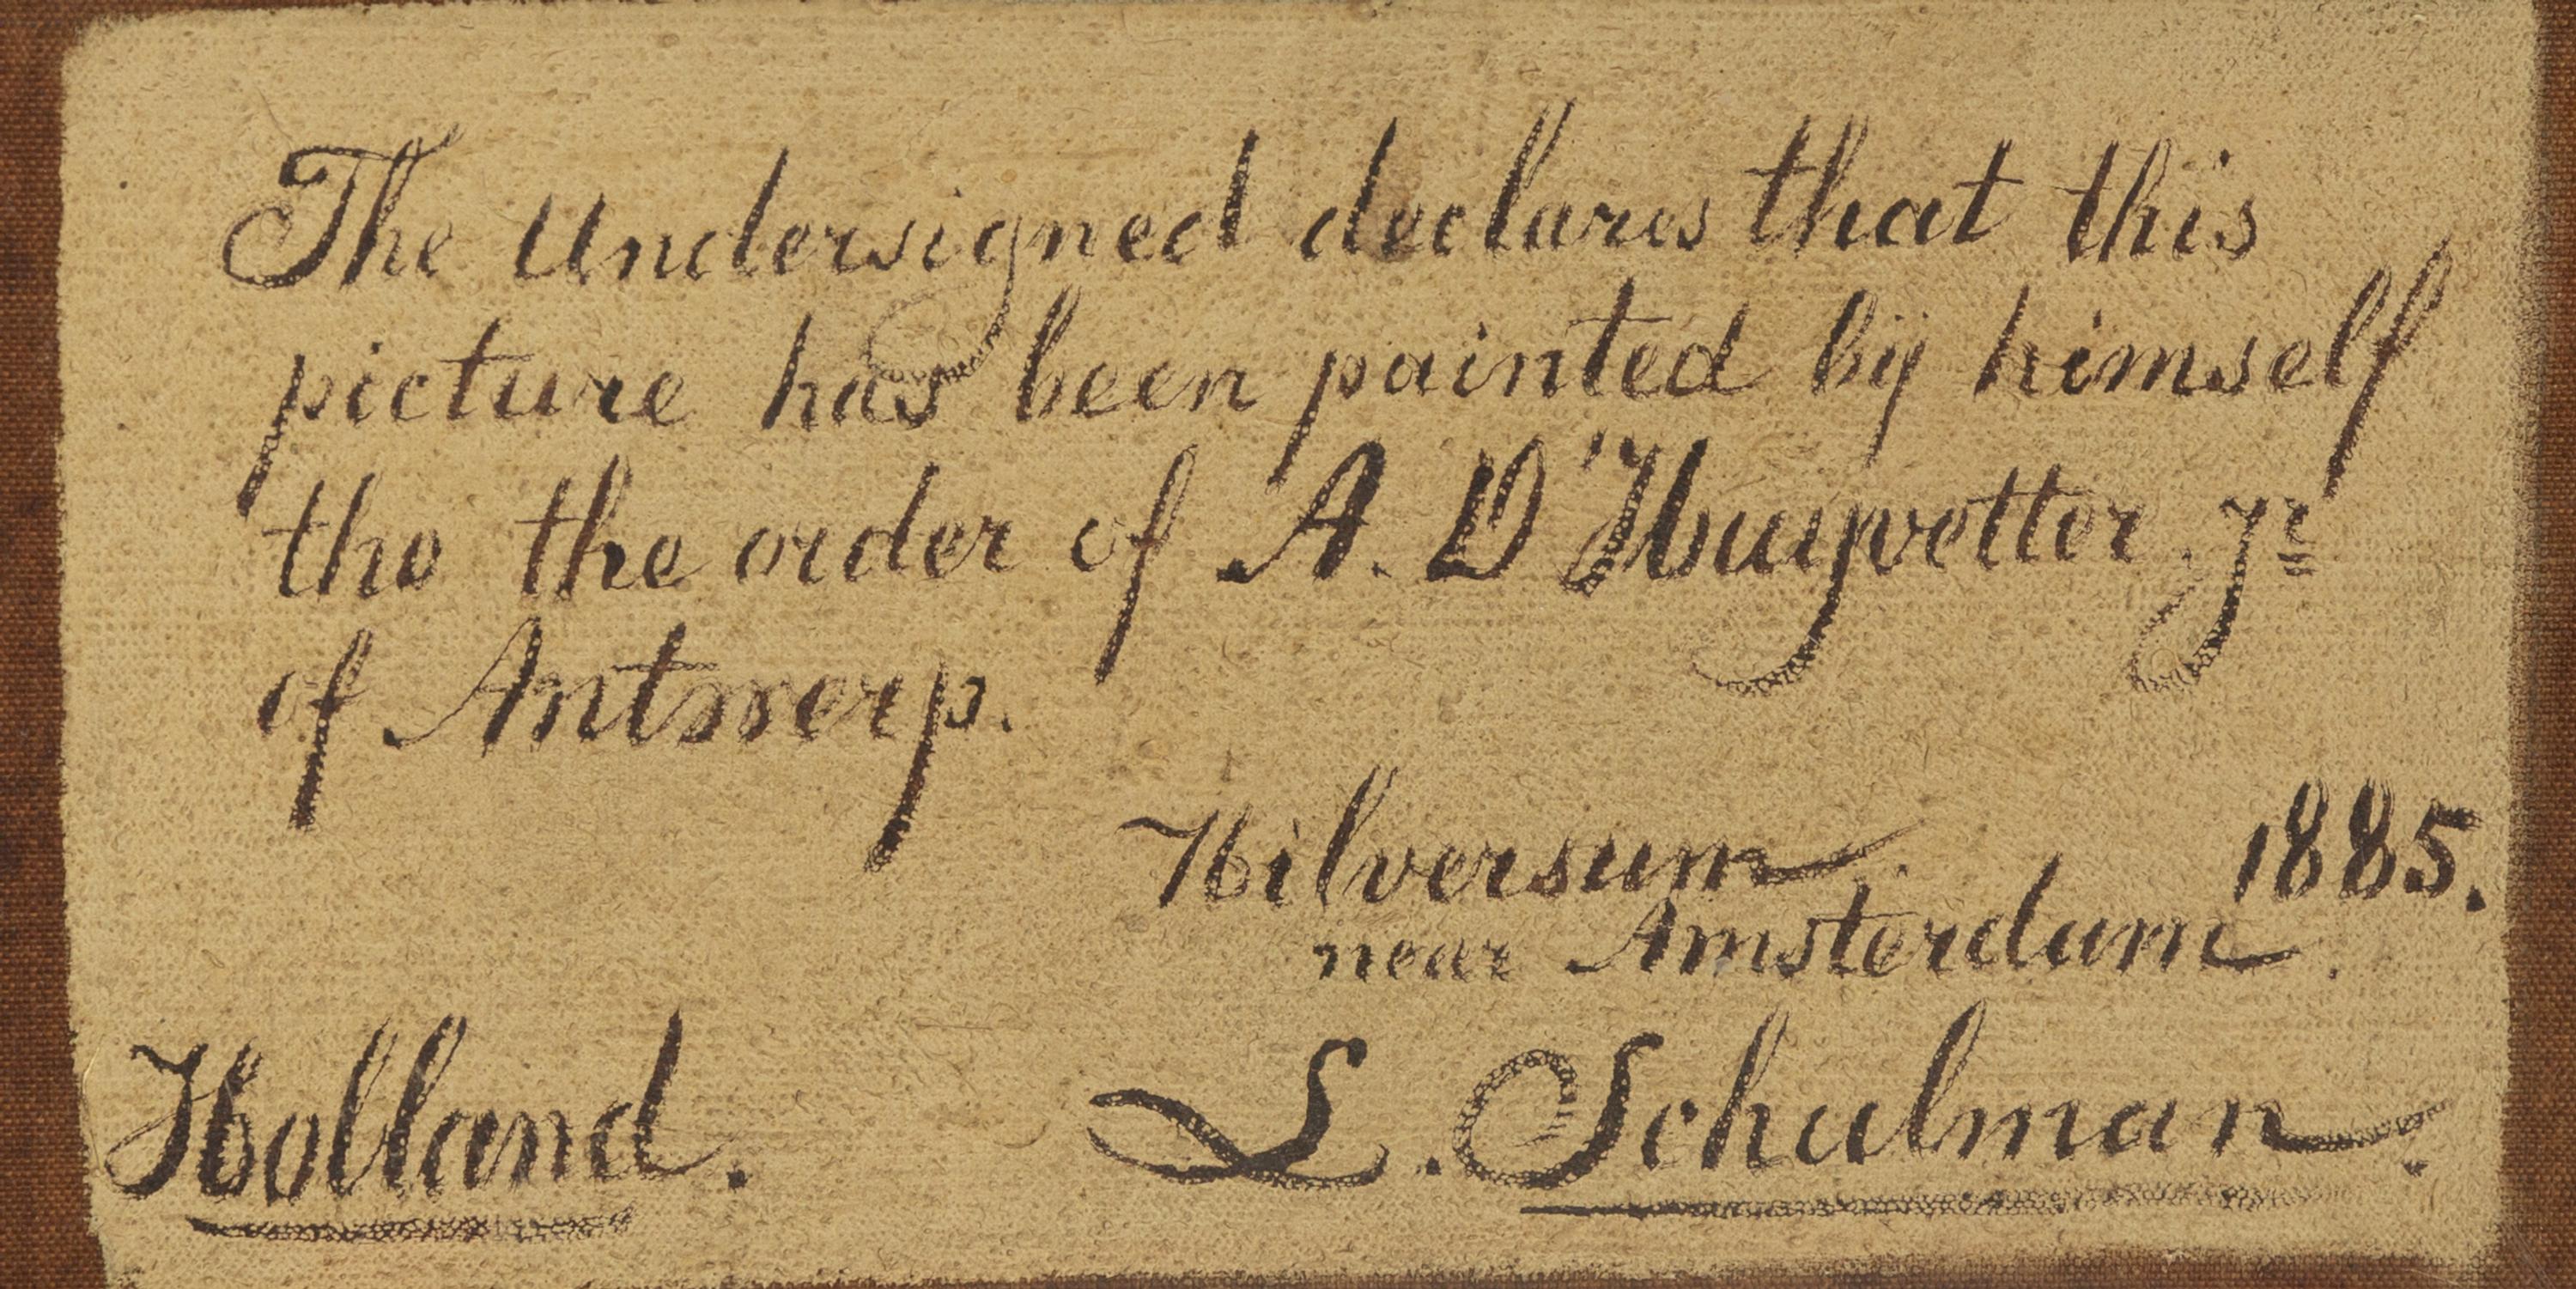 The Undersigned declares that this
picture has been painted bij himself
tho the order of A. D'Huyvetter. jr
of Antwerp.
Hilversum 1885.
near Amsterdam.
Holland. L. Schulman.